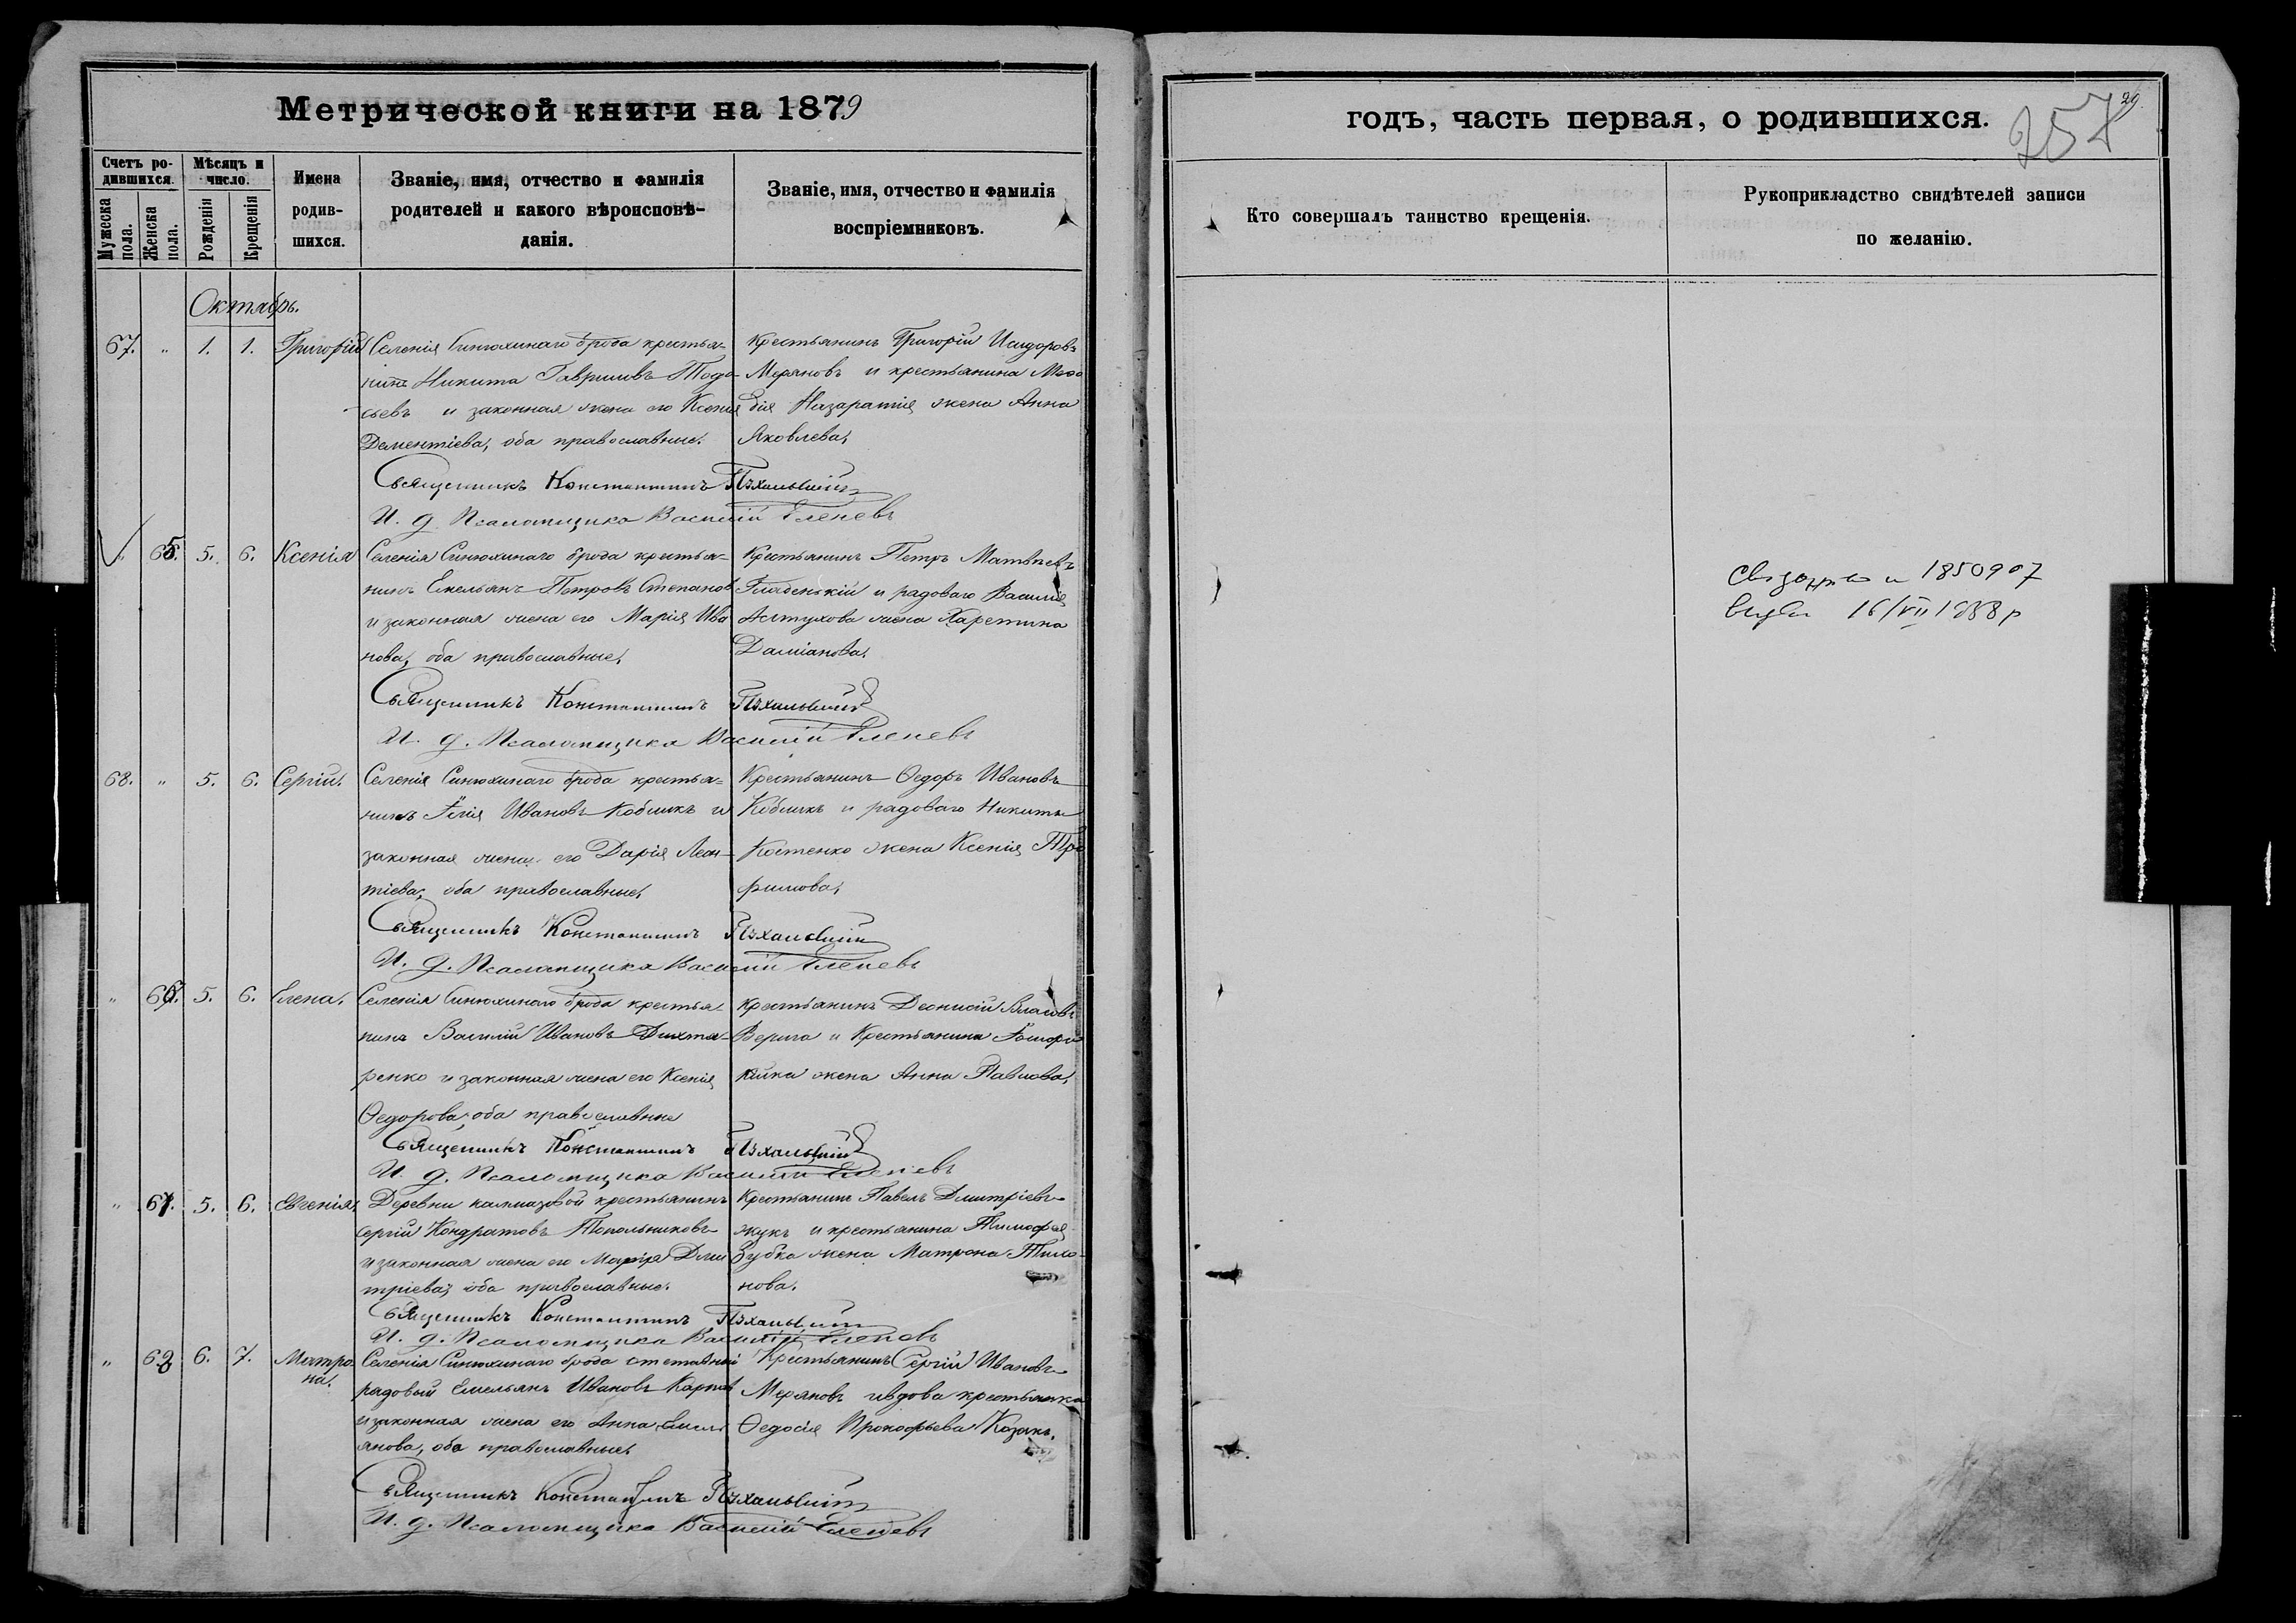 Метрической книги на 1879
Счетъ ро-
дившихся.
Мужеска пола.
Женска пола.
Мѣсяцъ и
число.
Рожденія
Крещенія
Имена
родив-
шихся.
Званіе, имя, отчество и фамилія
родителей и какого вѣроисповѣ-
данія.
Званіе, имя, отчество и фамилія
воспріемниковъ.
Октябрь.
67. " 1. 1. Григорій
Селенія Синюхинаго брода крестья-
нинъ Никита Гавриловъ Тодо-
сьевъ и законная жена его Ксенія
Дементіева, оба православные.
Крестьянинъ Григорій Исидоровъ
Меряновъ и крестьянина
Назаратія жена Анна
Яковлева,
Священникъ Константинъ
И. д. Псаломщика Василій Еленевъ
" 65. 5. 6. Ксенія
Селенія Синюхинаго брода крестья-
нинъ Емельянъ Петровъ Степанов
и законная жена его Марія Ива
нова, оба православные,
Крестьянинъ Петръ Матвѣевъ
и рядоваго Василія
Алтухова жена Харетина
Даміанова,
Священникъ Константинъ
И. д. Псаломщика Василій Еленевъ
68. " 5. 6. Сергій.
Селенія Синюхинаго брода крестья-
нинъ Илія Ивановъ Кобликъ и
законная жена его Дарія Леон-
тіева, оба православные,
Крестьянинъ Ѳедоръ Ивановъ
Кобликъ и рядоваго Никиты
Костенко жена Ксенія Тро
фимова,
Священникъ Константинъ
И. д. Псаломщика Василій Еленевъ
" 66. 5. 6. Елена.
Селенія Синюхинаго брода крестья-
нинъ Василій Ивановъ Дихтя-
ренко и законная жена его Ксенія
Ѳедорова, оба православные
Крестьянинъ Деонисій Власовъ
Верига и Крестьянина
жена Анна Павлова,
Священникъ Константинъ
И. д. Псаломщика Василій Еленевъ
" 67. 5. 6. Евгенія,
Деревни калмазовой крестьянинъ
Сергій Кондратовъ Топольниковъ
и законная жена его Марія Дми
тріева, оба православные.
Крестьянинъ Павелъ Дмитріевъ
жукъ и крестьянина Тимофея
Зубка жена Матрона
нова.
Священникъ Константинъ
И. д. Псаломщика Василій Еленевъ
" 68 6. 7. Матро.
на.
Селенія Синюхинаго брода отставной
рядовый Емельянъ Ивановъ Карпов
и законная жена его Анна Емель
янова, оба православные.
Крестьянинъ Сергій Ивановъ
Меряновъ и вдова крестьянка
Ѳедосія Прокофьева Козакъ.
Священникъ Константинъ
И. д. Псаломщика Василій Еленевъ
годъ, часть первая, о родившихся.
29.
257
Кто совершалъ таинство крещенія.
Рукоприкладство свидѣтелей записи
по желанію.
1850907
16/VII 1988 р